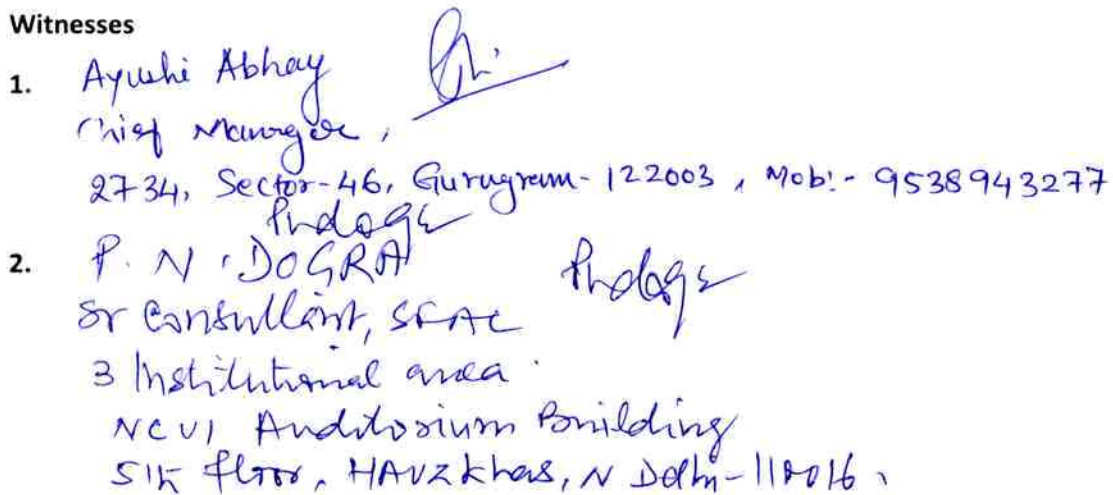 Witnesses
1. Ayushi Abhay
Chief Manager,
2734, Sector-46, Gurugram-122003, Mob:- 9538943277
Pndogra
2. P. N. DOGRA
Pndogra
Sr Consultant, SFAC
3 Institutional area.
NCUI Auditorium Building
5th floor, HAUZ Khas, N Delhi-110016,